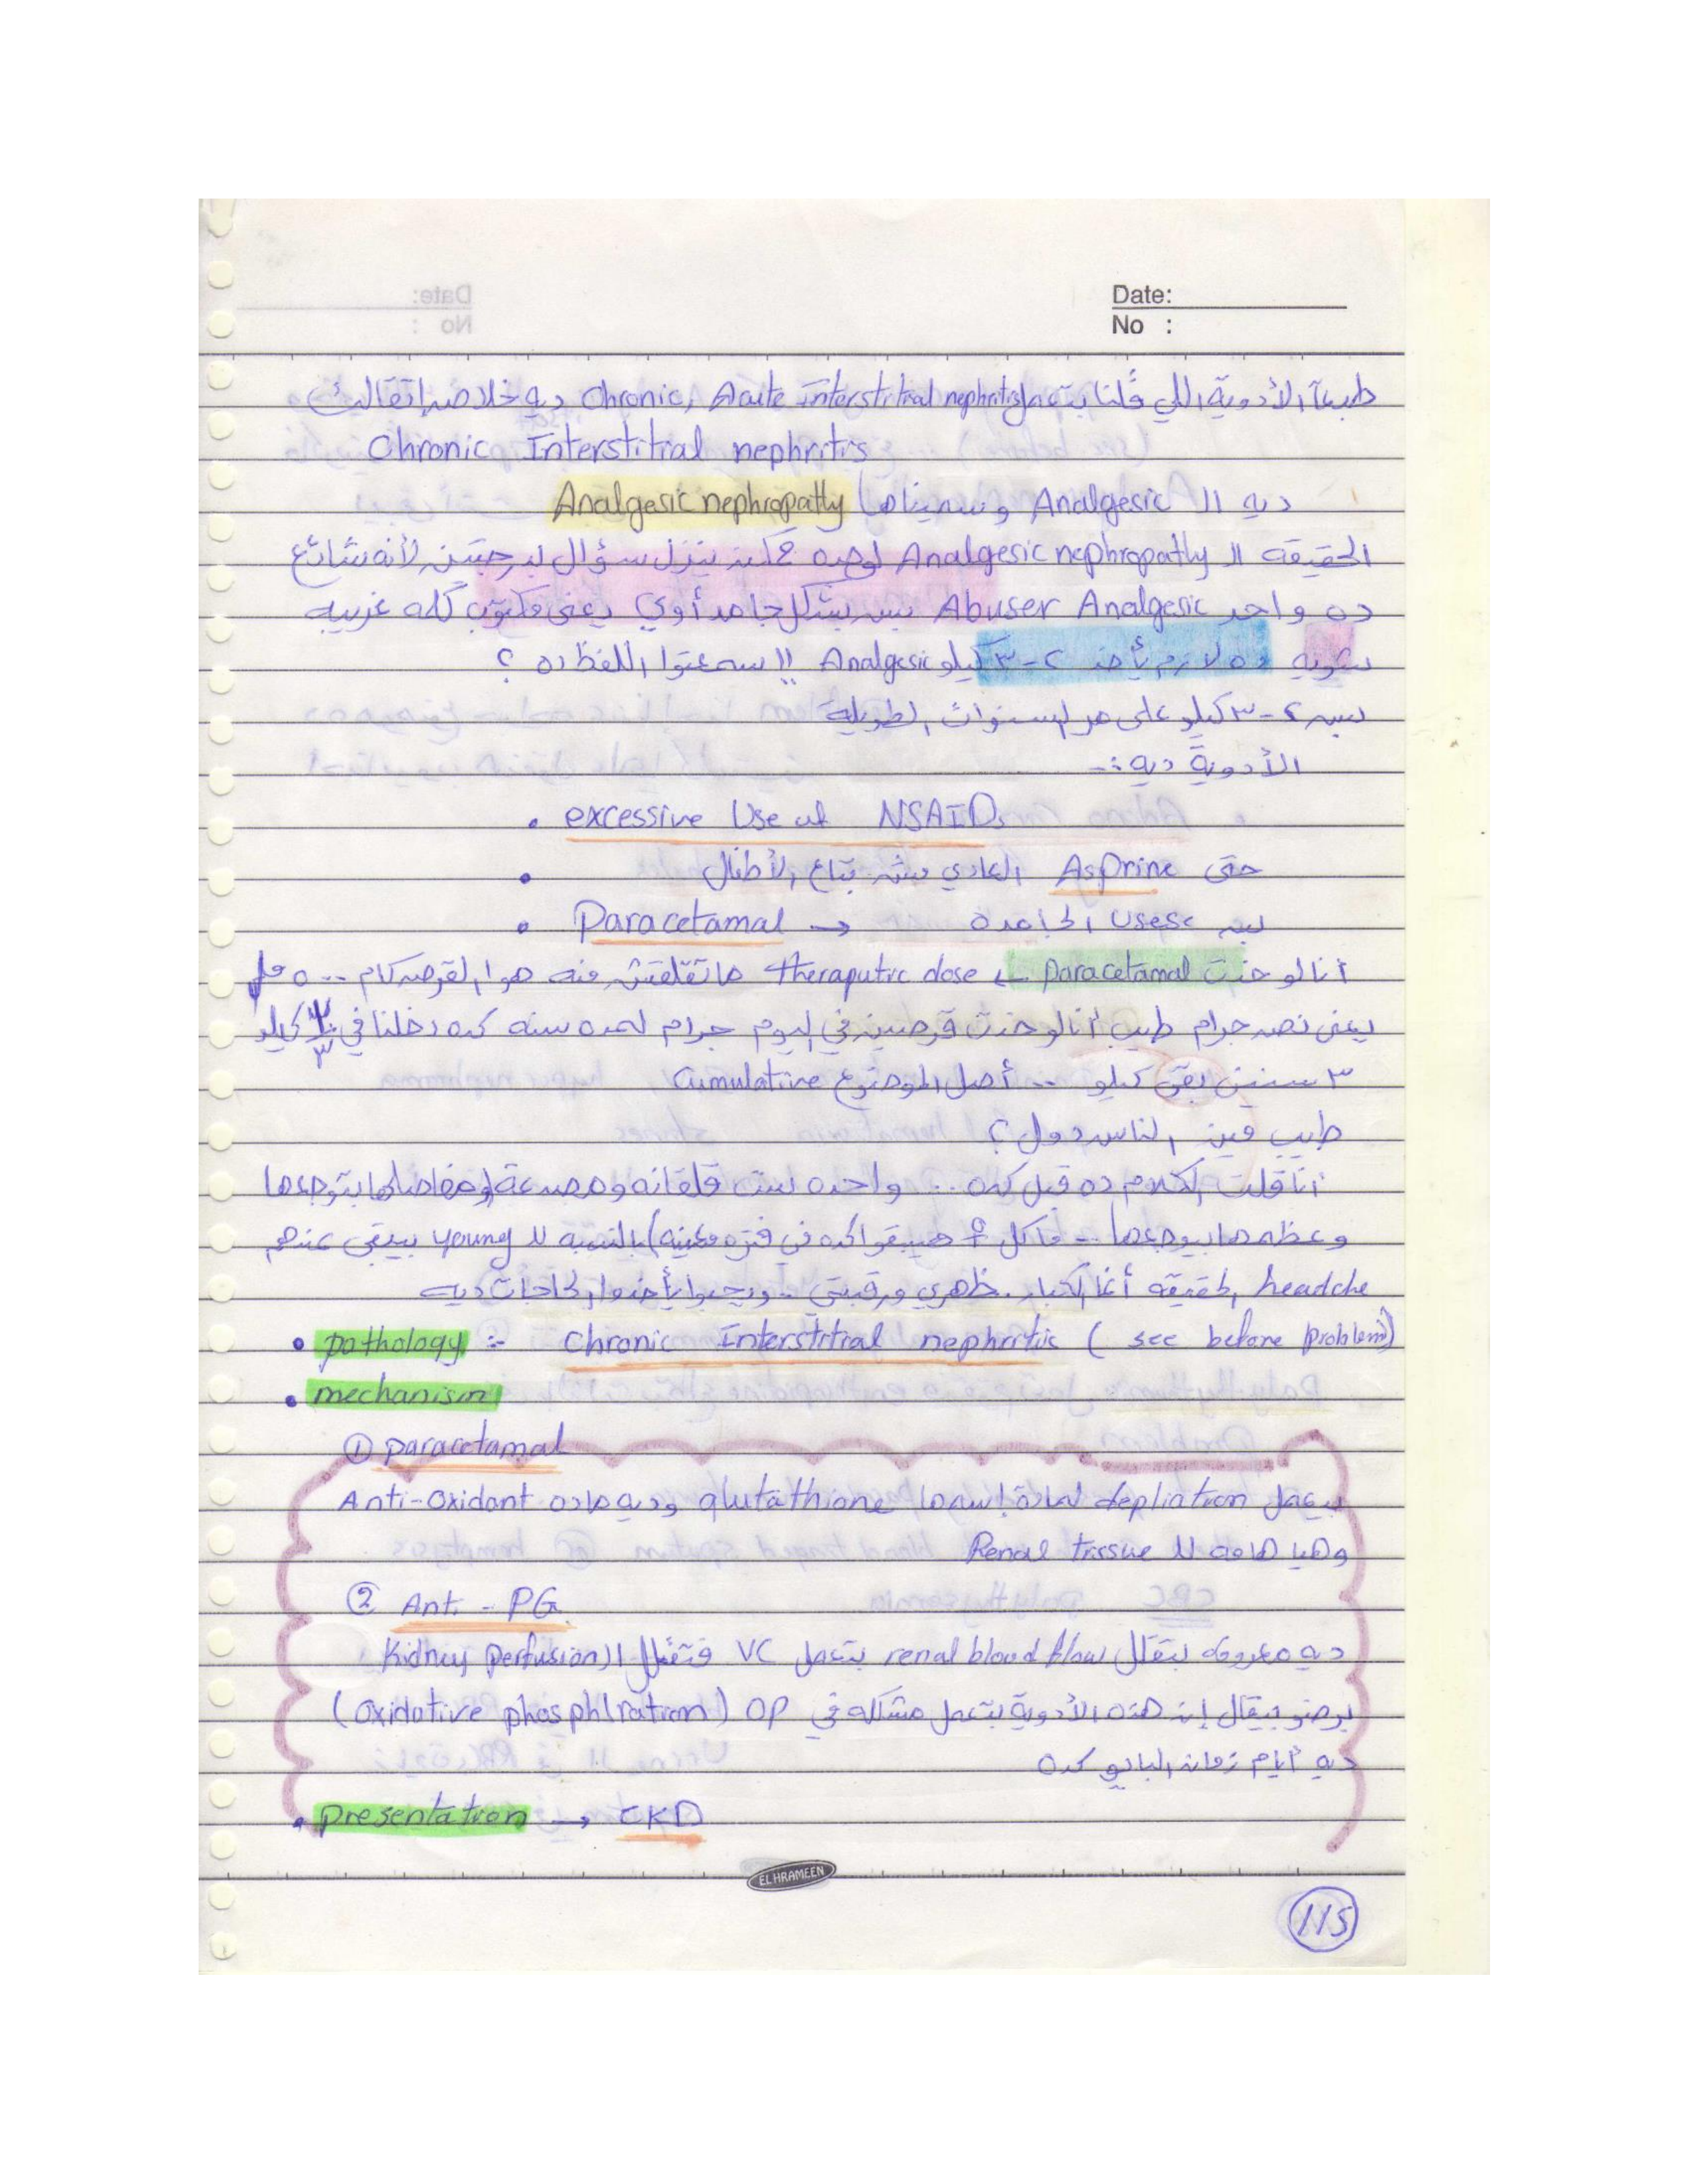 Date:
No :
طبعاً الأدوية اللي قلنا بتعمل Chronic, Acute Interstitial nephritis ديه خلاص اتقالت
Chronic Interstitial nephritis
ديه ال Analgesic وسميناها Analgesic nephropatly
الحقيقه ال Analgesic nephropatly لوحده ممكن ينزل سؤال بدرجتين لأنه شائع
ده واحد Abuser Analgesic بس بشكل جامد أوي يعني مكتوب كلمه غريبه
شويه ده لازم يأخذ ٢-٣ كيلو Analgesic !! سمعتوا اللفظ ده ؟
بس ٢-٣ كيلو على مر السنوات الطويلة
الأدوية ديه :-
• excessive Use of NSAIDs
• حتى Asprine العادي مش بتاع الأطفال
• Paracetamal → بس Uses الجامده
أنا لو خدت paracetamal ← theraputic dose ماتقلقش منه هو القرص كام .. ٥٠٠ مل
يعنى نصف جرام طيب أنا لو خدت قرصين في اليوم جرام لمده سنه كده دخلنا في ١/٣ كيلو
٣ سنين بقى كيلو .. أصل الموضوع Cumulative
طيب فين الناس دول ؟
أنا قلت الكلام ده قبل كده .. واحده ست قلقانه ومصدعة ومفاصلها بتوجعها
وعظمها بيوجعها .. ما كل ♀ هيبقوا كده في فتره معينه) بالنسبه لل young بيبقى عندهم
headche الحقيقه أما الكبار . ظهري ورقبتي .. ويجيوا يأخذوا الحاجات ديه
• pathology :- Chronic Interstitial nephritic ( see before problem)
• mechanism
① paracetamal
بيعمل depliation لمادة إسمها glutathione وديه ماده Anti-Oxidant
وهيا هامه لل Renal tissue
② Anti - PG
ديه معروفه بتقلل renal blood flow بتعمل VC فتقلل ال Kidney perfusion
برضو بيقال إن هذه الأدوية بتعمل مشكله في OP (oxidative phosphlration)
ديه أيام زمان البايو كده
• presentation → CKD
EL HRAMEEN
115